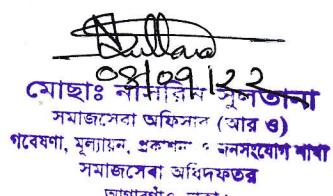 04/09/22
মোছাঃ নাসরিন সুলতানা
সমাজসেবা অফিসার (আর ও)
গবেষণা, মূল্যায়ন, প্রকাশনা ও জনসংযোগ শাখা
সমাজসেবা অধিদফতর
আগারগাঁও, ঢাকা।